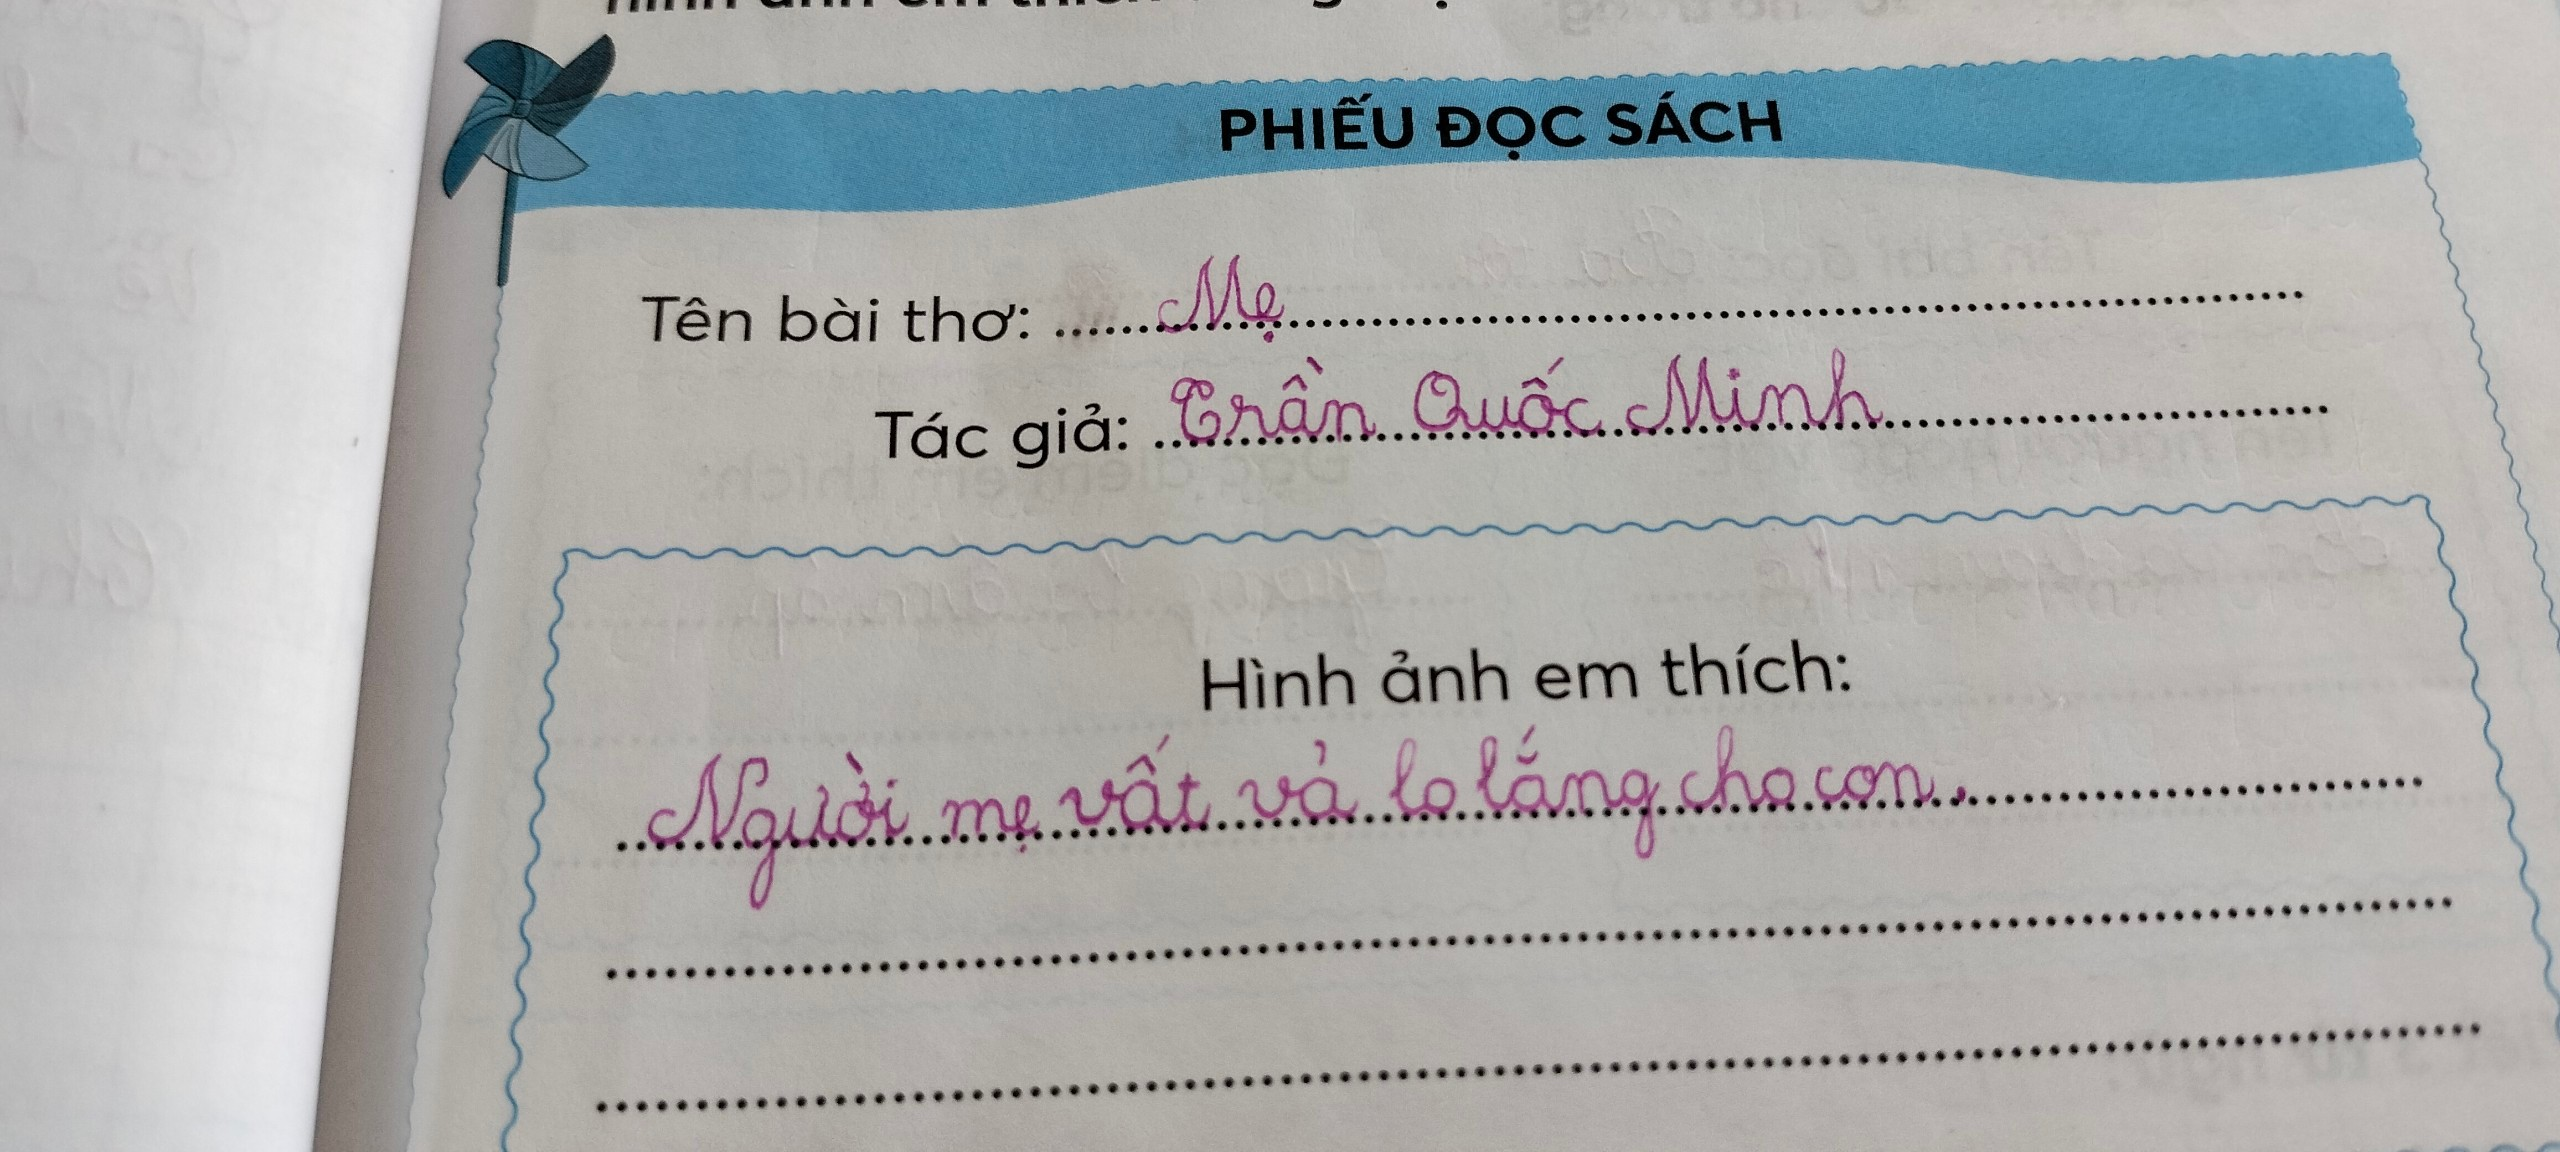 PHIẾU ĐỌC SÁCH
Tên bài thơ: Mẹ
Tác giả: Trần Quốc Minh
Hình ảnh em thích:
Người mẹ vất vả lo lắng cho con.